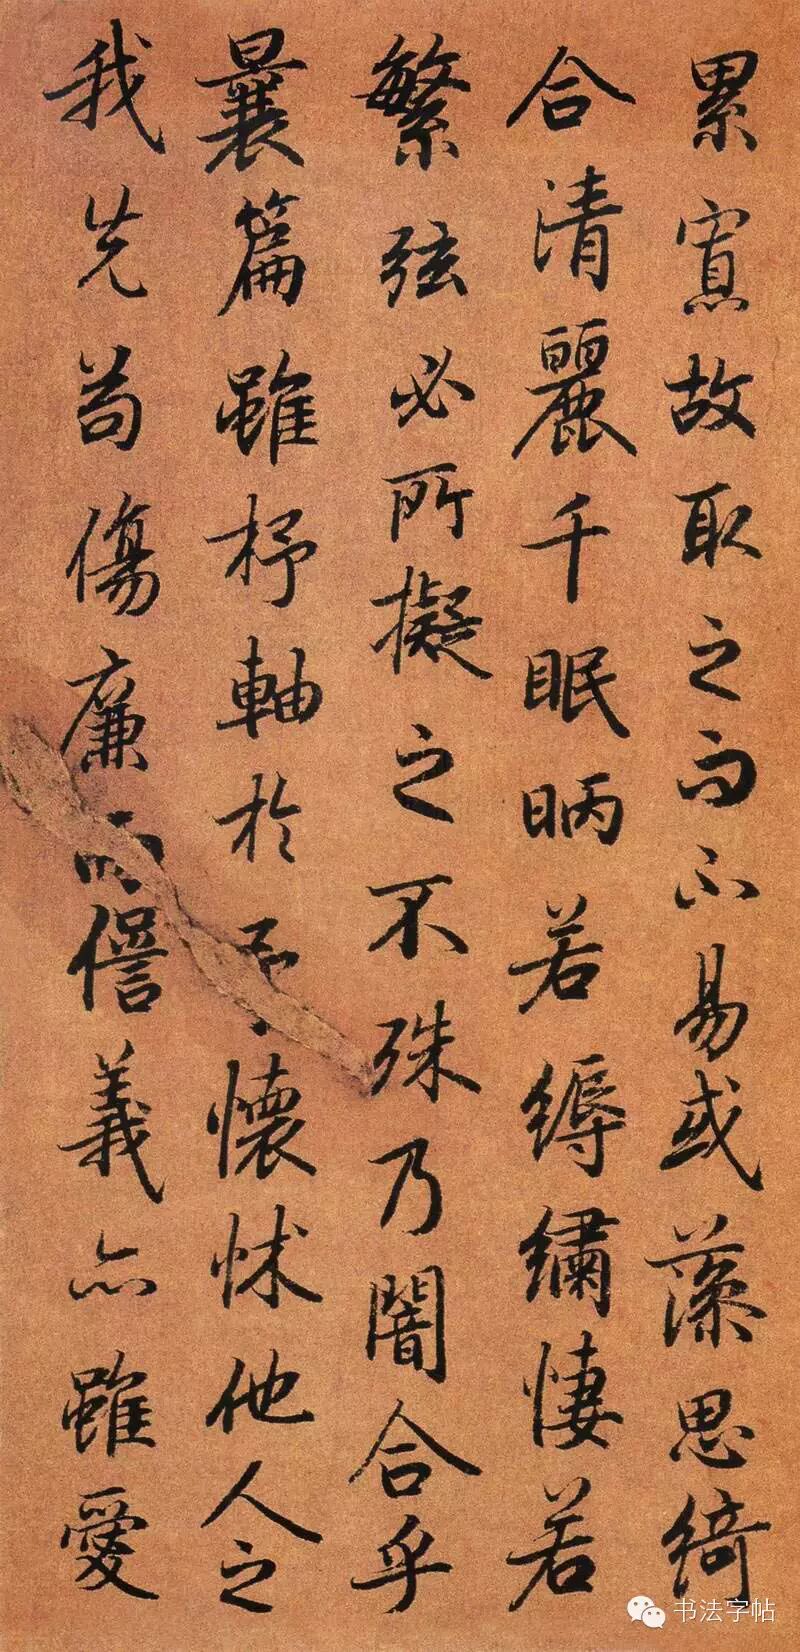 累寡故取足而不易或藻思綺
合清麗千眠昞若縟繡悽若
繁弦必所擬之不殊乃闇合乎
曩篇雖杼軸於予懷怵他人之
我先苟傷廉而愆義亦雖愛
书法字帖